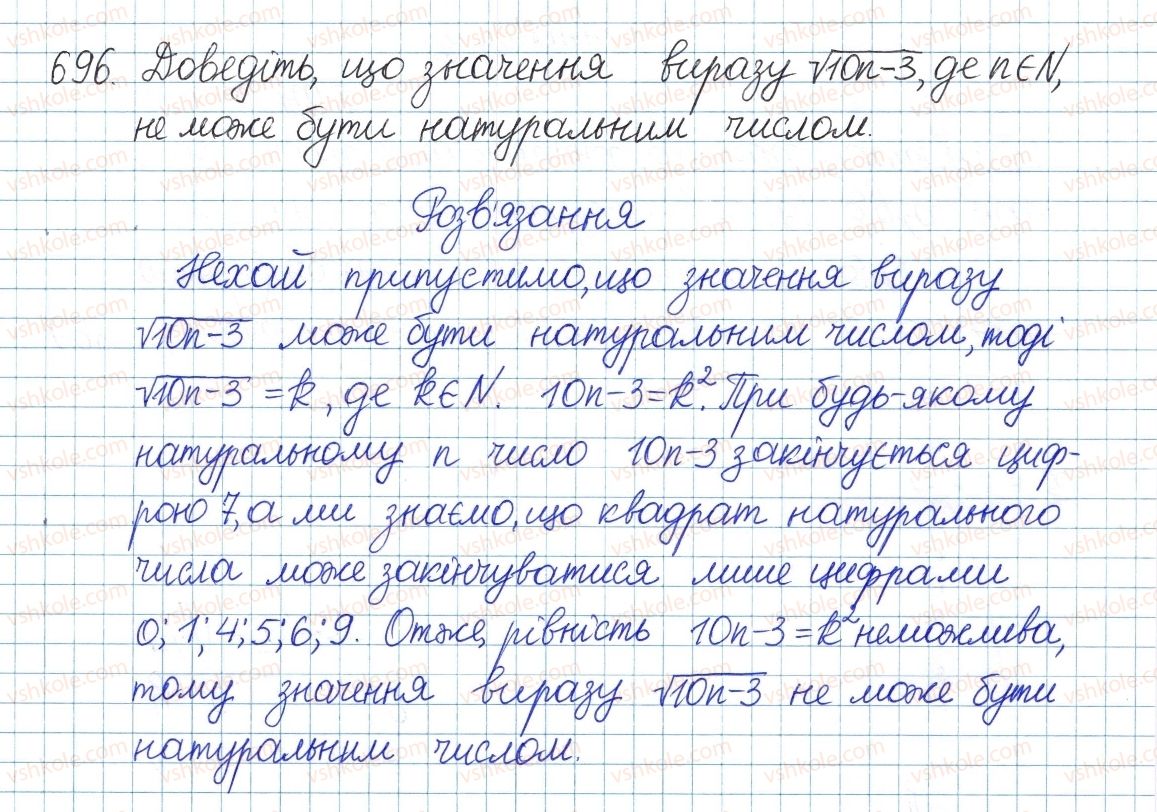 696. Доведіть, що значення виразу √10n-3, де n∈N,
не може бути натуральним числом.
Розв'язання
Нехай припустимо, що значення виразу
√10n-3 може бути натуральним числом, тоді
√10n-3 = k, де k∈N. 10n-3=k². При будь-якому
натуральному n число 10n-3 закінчується циф-
рою 7, а ми знаємо, що квадрат натурального
числа може закінчуватися лише цифрами
0; 1; 4; 5; 6; 9. Отже, рівність 10n-3=k² неможлива,
тому значення виразу √10n-3 не може бути
натуральним числом.